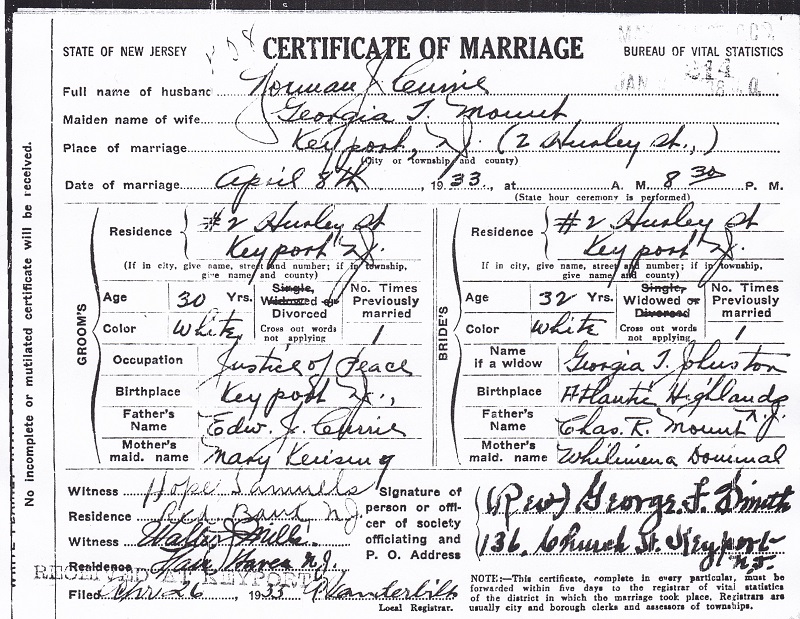 STATE OF NEW JERSEY
CERTIFICATE OF MARRIAGE
BUREAU OF VITAL STATISTICS
Full name of husband Norman J. Currie
Maiden name of wife Georgia T. Mount
Place of marriage Keyport, N.J. (2 Hurley St.,)
(City or township and county)
Date of marriage April 8th, 1933, at A. M. 8 30 P. M.
(State hour ceremony is performed)
No incomplete or mutilated certificate will be received.
GROOM'S
Residence #2 Hurley St
Keyport N.J.
(If in city, give name, street and number; if in township,
give name and county)
Age 30 Yrs. Single, Widowed or Divorced
No. Times Previously married 1
Color White
Cross out words not applying
Occupation Justice of Peace
Birthplace Keyport N.J.,
Father's Name Edw. J. Currie
Mother's maid. name Mary
BRIDE'S
Residence #2 Hurley St
Keyport N.J.
(If in city, give name, street and number; if in township,
give name and county)
Age 32 Yrs. Single, Widowed or Divorced
No. Times Previously married 1
Color White
Cross out words not applying
Name if a widow Georgia T. Johnston
Birthplace Atlantic Highlands N.J.
Father's Name Chas. R. Mount
Mother's maid. name Whilimena
Witness Hope Samuels
Residence Red Bank N.J.
Witness Walter Mills
Residence N.J.
RECEIVED AT KEYPORT
Filed Apr 26 1933 Vanderbilt
Local Registrar.
Signature of person or officer of society officiating and P. O. Address
(Rev) George F.
136 Church St. Keyport
N.J.
NOTE:—This certificate, complete in every particular, must be
forwarded within five days to the registrar of vital statistics
of the district in which the marriage took place. Registrars are
usually city and borough clerks and assessors of townships.